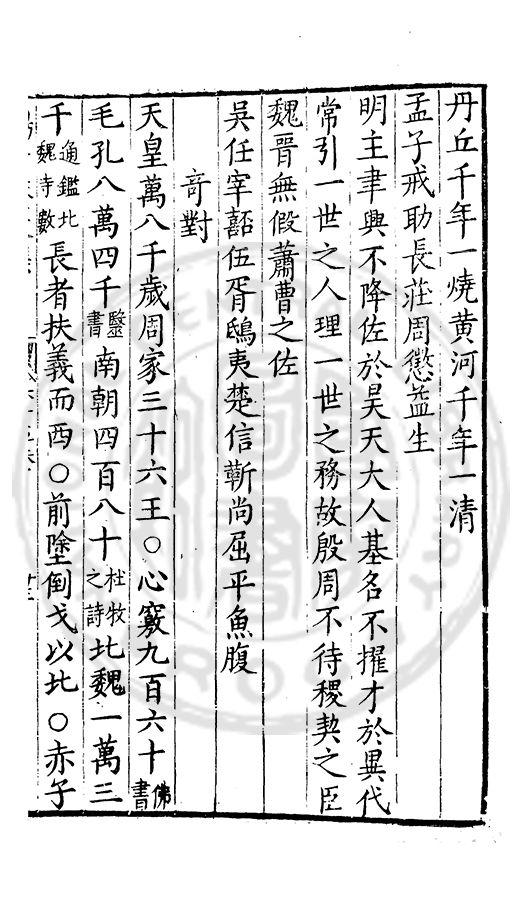 丹丘千年一燒黃河千年一清
孟子戒助長莊周懲益生
明主聿興不降佐於昊天大人基名不擢才於異代
常引一世之人理一世之務故殷周不待稷契之臣
魏晉無假蕭曹之佐
吳任宰嚭伍胥鴟夷楚信靳尚屈平魚腹
奇對
天皇萬八千歲周家三十六王○心竅九百六十佛書
毛孔八萬四千醫書南朝四百八十杜牧之詩北魏一萬三
千通鑑北魏寺數長者扶義而西○前塗倒戈以北○赤子